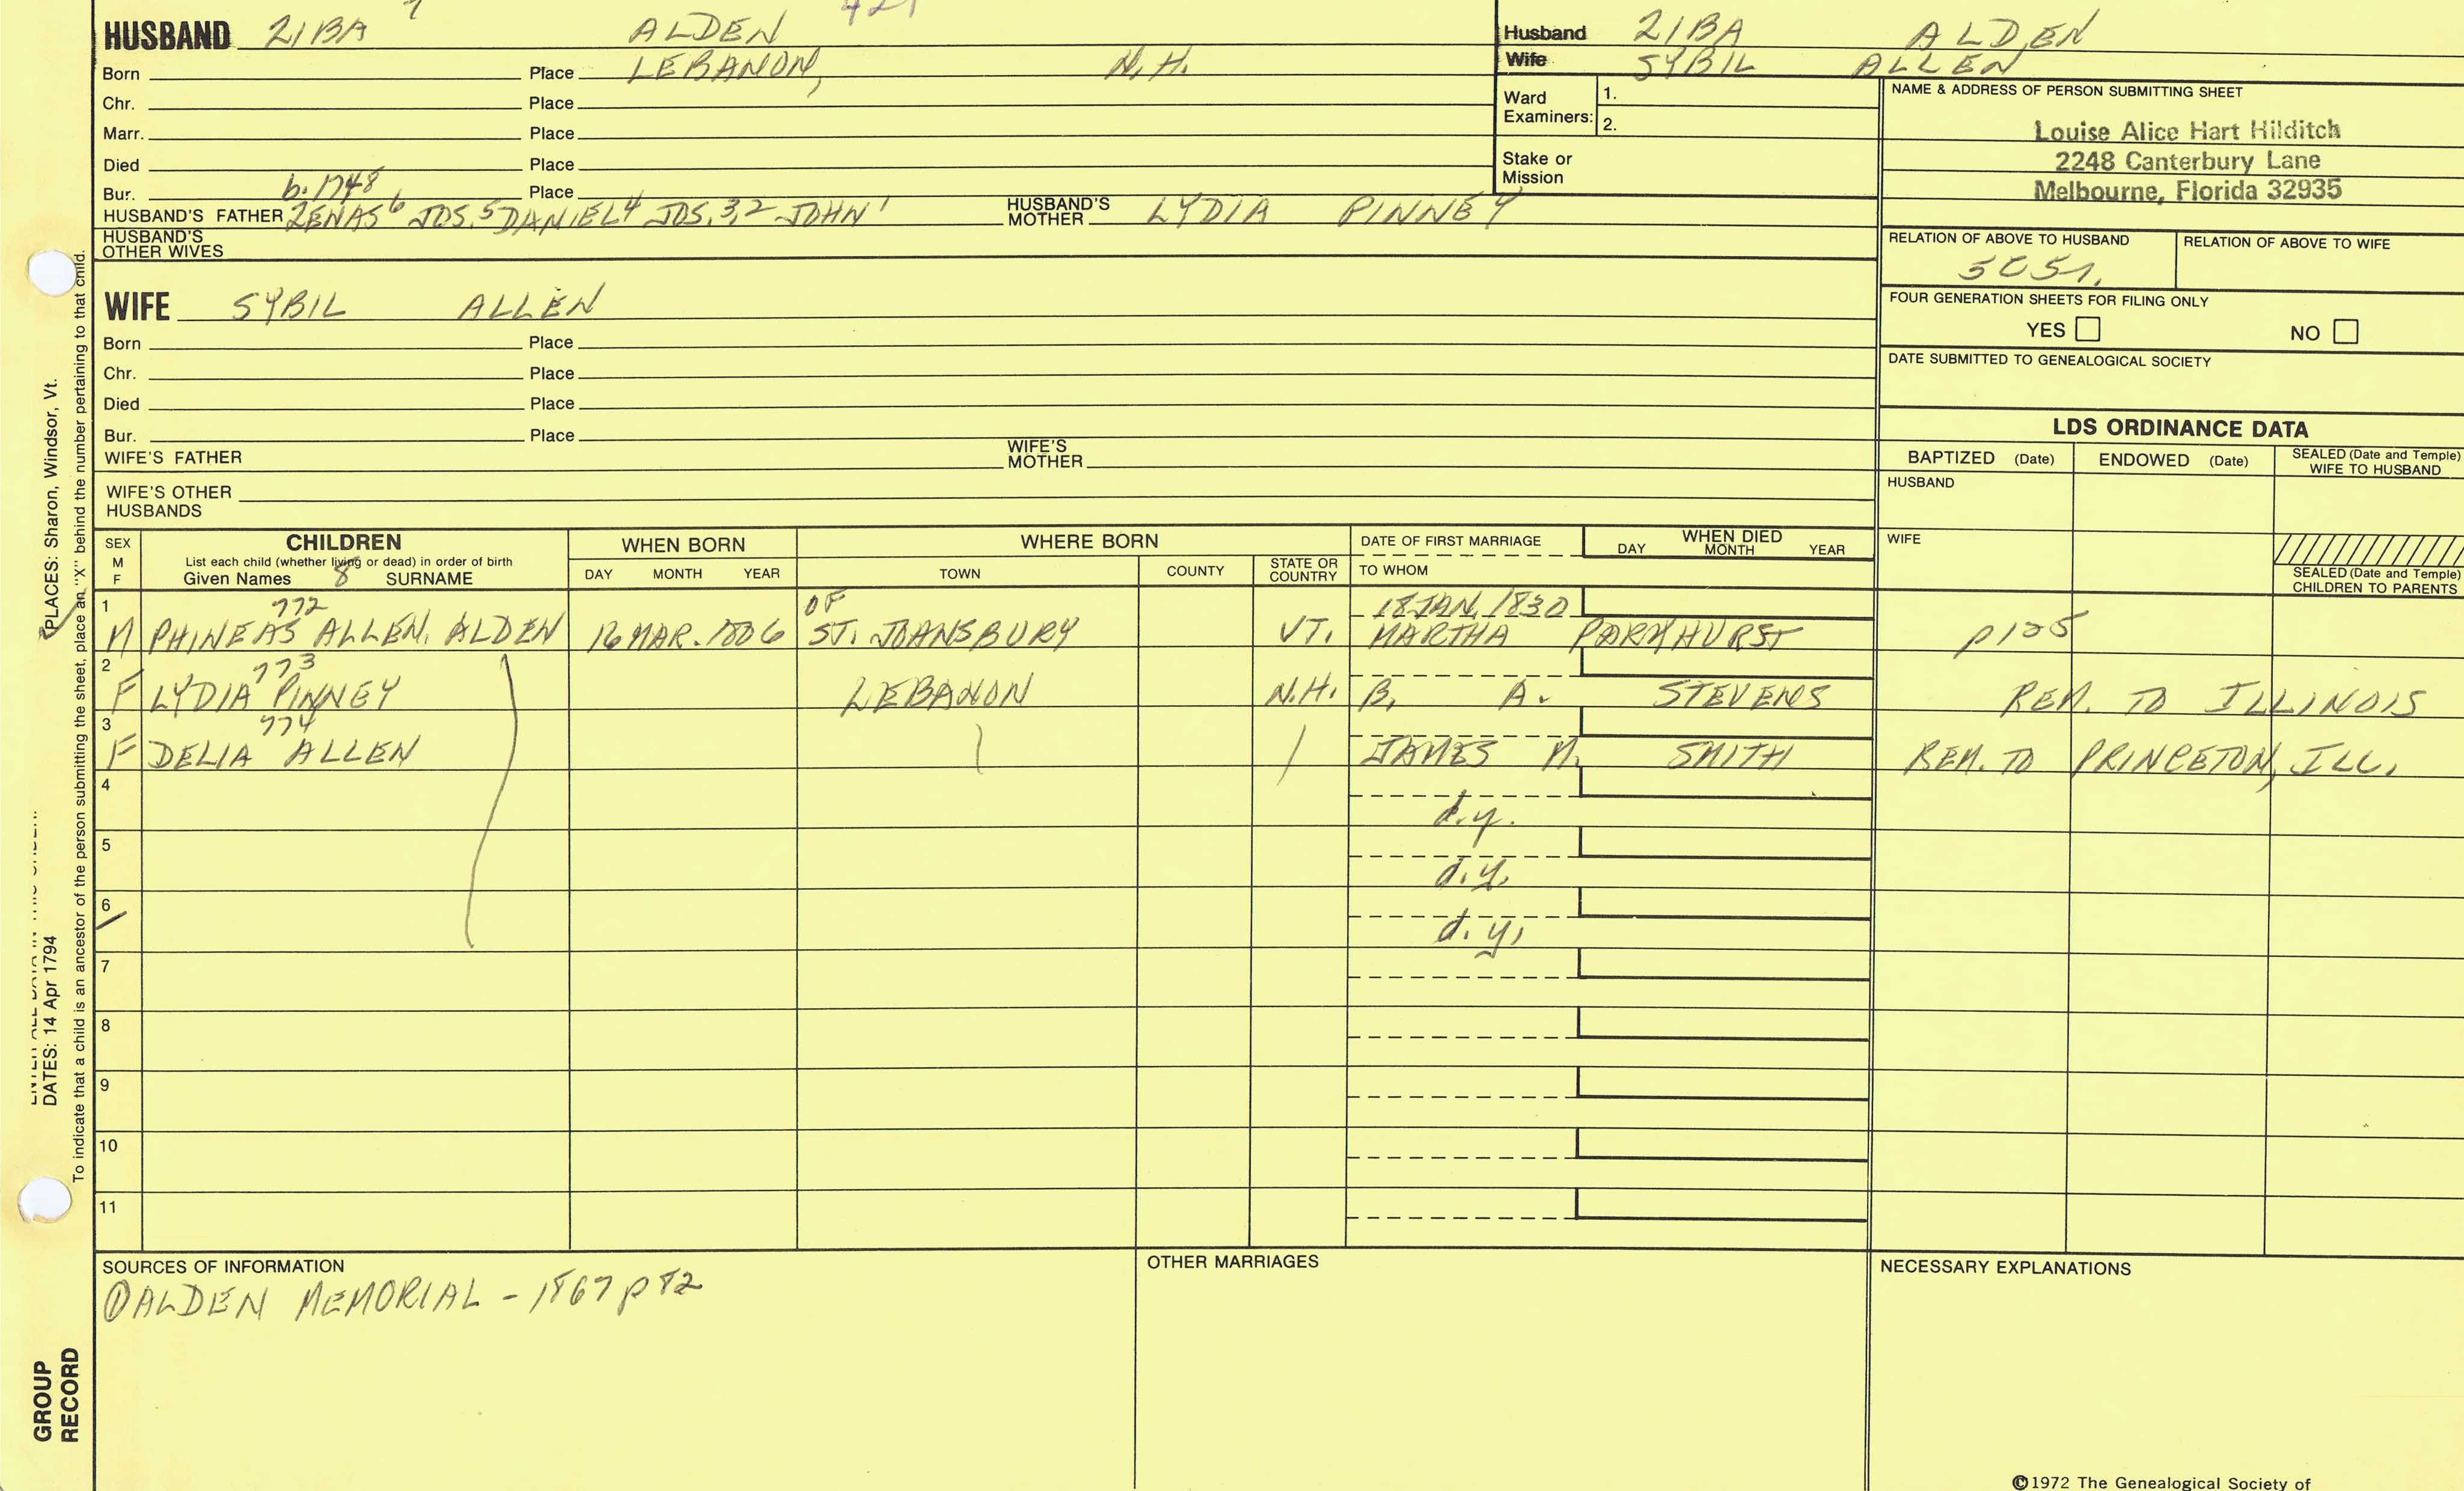 HUSBAND ZIBA 7 ALDEN
Born Place LEBANON, N.H.
Chr. Place
Marr. Place
Died Place
Bur. b. 1748 Place
HUSBAND'S FATHER ZENAS6 JOS.5 DANIEL4 JOS.3,2 JOHN1 HUSBAND'S MOTHER LYDIA PINNEY
HUSBAND'S OTHER WIVES
WIFE SYBIL ALLEN
Born Place
Chr. Place
Died Place
Bur. Place
WIFE'S FATHER WIFE'S MOTHER
WIFE'S OTHER HUSBANDS
Husband ZIBA ALDEN
Wife SYBIL ALLEN
Ward Examiners: 1.
2.
Stake or Mission
NAME & ADDRESS OF PERSON SUBMITTING SHEET
Louise Alice Hart Hilditch
2248 Canterbury Lane
Melbourne, Florida 32935
RELATION OF ABOVE TO HUSBAND RELATION OF ABOVE TO WIFE
FOUR GENERATION SHEETS FOR FILING ONLY
YES NO
DATE SUBMITTED TO GENEALOGICAL SOCIETY
LDS ORDINANCE DATA
BAPTIZED (Date) ENDOWED (Date) SEALED (Date and Temple) WIFE TO HUSBAND
HUSBAND
WIFE
SEALED (Date and Temple) CHILDREN TO PARENTS
SEX M F CHILDREN WHEN BORN WHERE BORN DATE OF FIRST MARRIAGE WHEN DIED
List each child (whether living or dead) in order of birth
Given Names 8 SURNAME DAY MONTH YEAR TOWN COUNTY STATE OR COUNTRY TO WHOM DAY MONTH YEAR
1 772 OF 18 JAN. 1830
M PHINEAS ALLEN. ALDEN 16 MAR. 1806 ST. JOANSBURY VT. MARTHA PARKHURST p125
2 773
F LYDIA PINNEY LEBANON N.H. B. A. STEVENS REM. TO ILLINOIS
3 774
F DELIA ALLEN JAMES M. SMITH REM. TO PRINCETON, ILL.
4 d.y.
5 d.y.
6 d.y.
7
8
9
10
11
SOURCES OF INFORMATION
① ALDEN MEMORIAL - 1867 p 82
OTHER MARRIAGES
NECESSARY EXPLANATIONS
©1972 The Genealogical Society of
PLACES: Sharon, Windsor, Vt.
DATES: 14 Apr 1794
To indicate that a child is an ancestor of the person submitting the sheet, place an "X" behind the number pertaining to that child.
GROUP
RECORD